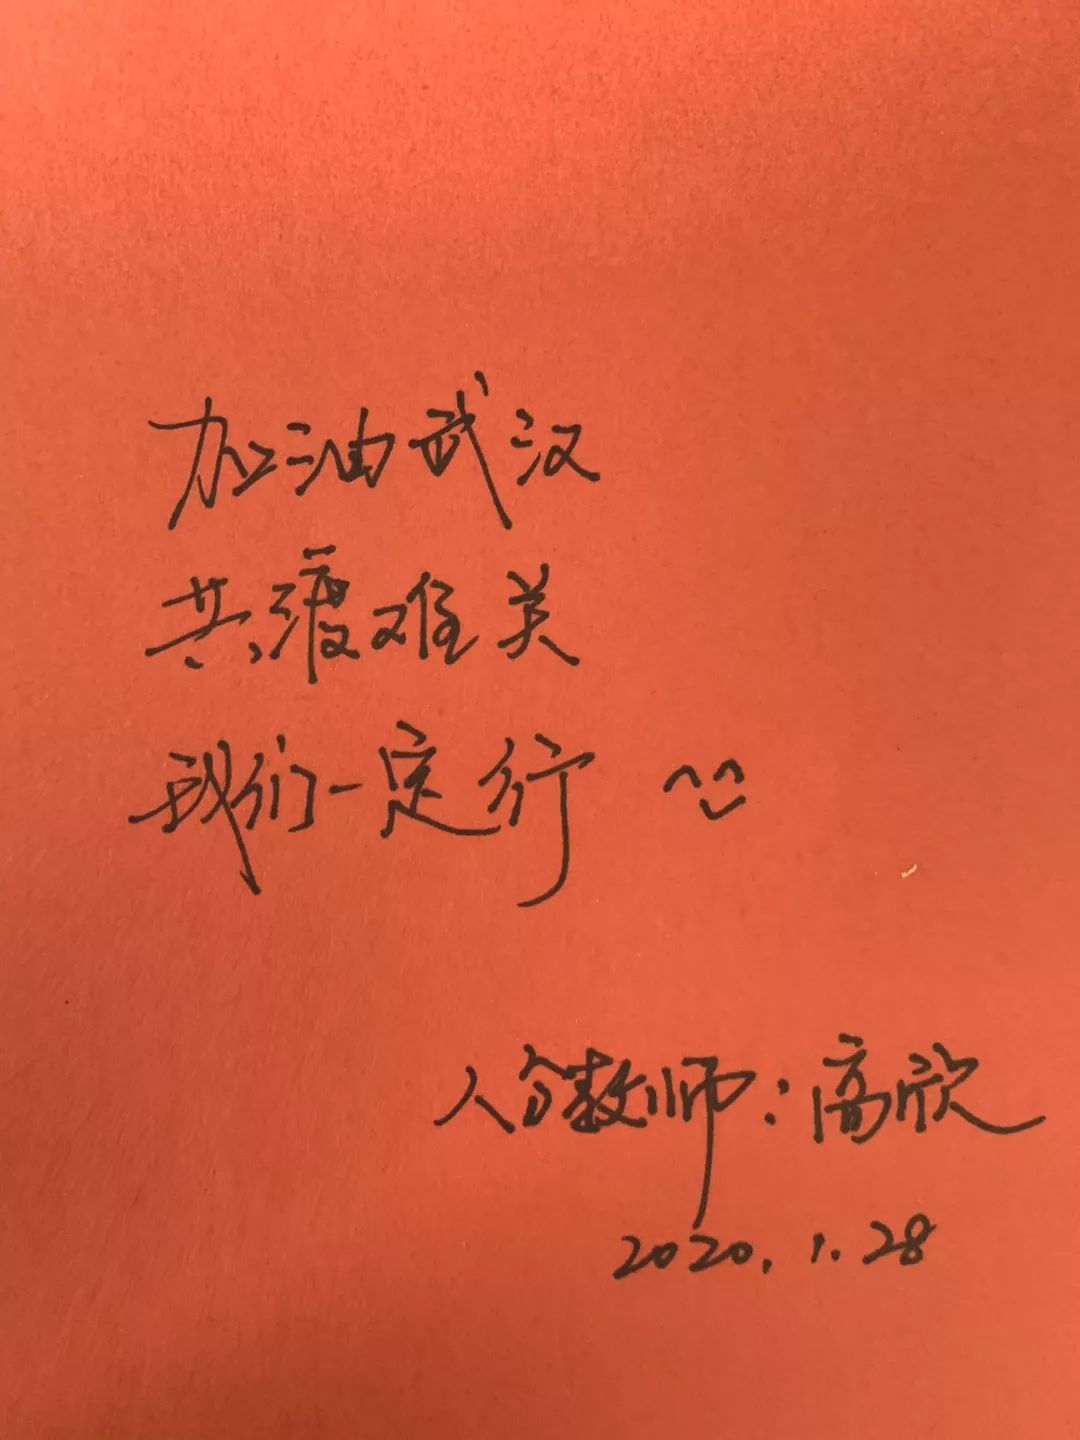 加油武汉
共渡难关
我们一定行 ^^
人分教师：高欣
2020.1.28